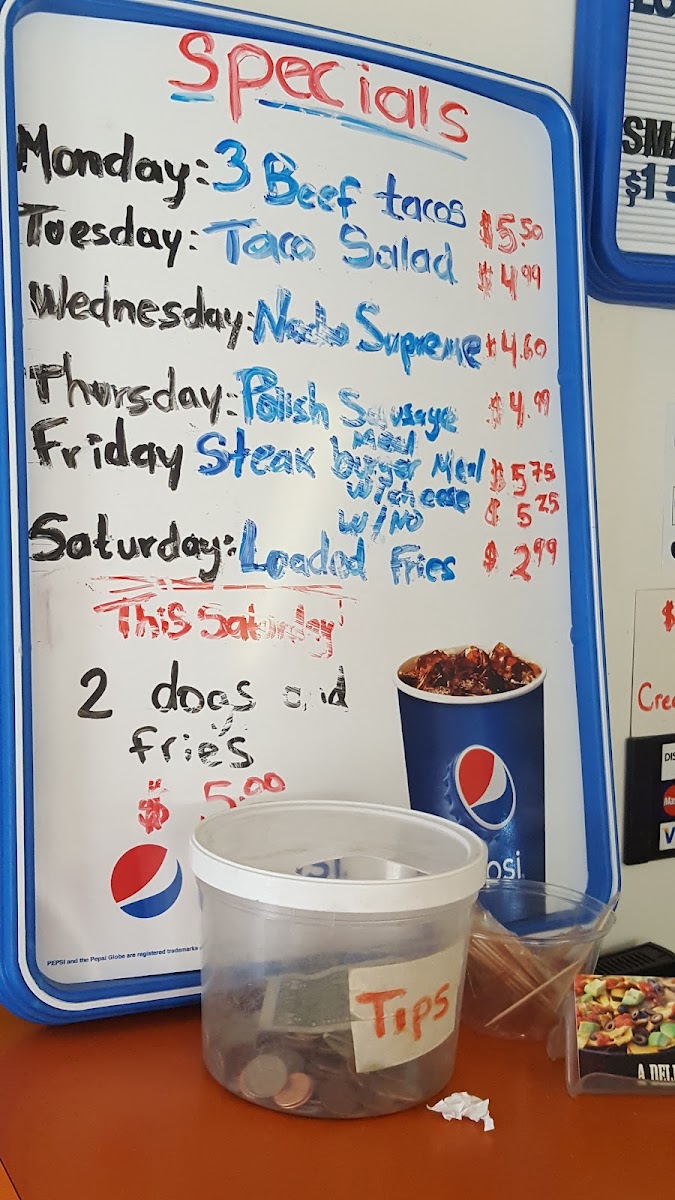 Specials
Monday: 3 Beef tacos $5.50
Tuesday: Taco Salad $4.99
Wednesday: Nacho Supreme $4.60
Thursday: Polish Sausage $4.99
Meal
Friday Steak burger Meal $5.75
W/cheese $5.25
W/NO
Saturday: Loaded Fries $2.99
This Saturday
2 dogs and
fries
$5.00
PEPSI and the Pepsi Globe are registered trademarks
osi
Tips
SMA
$1 5
$
Cre
DIS
V
A DEL